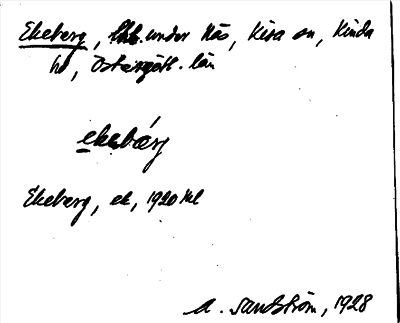 Ekeberg, under Näs, Kisa sn, Kinda
hd, Östergötl. län
ekebærj
Ekeberg, ek, 1920 kl
A. Sandström, 1928